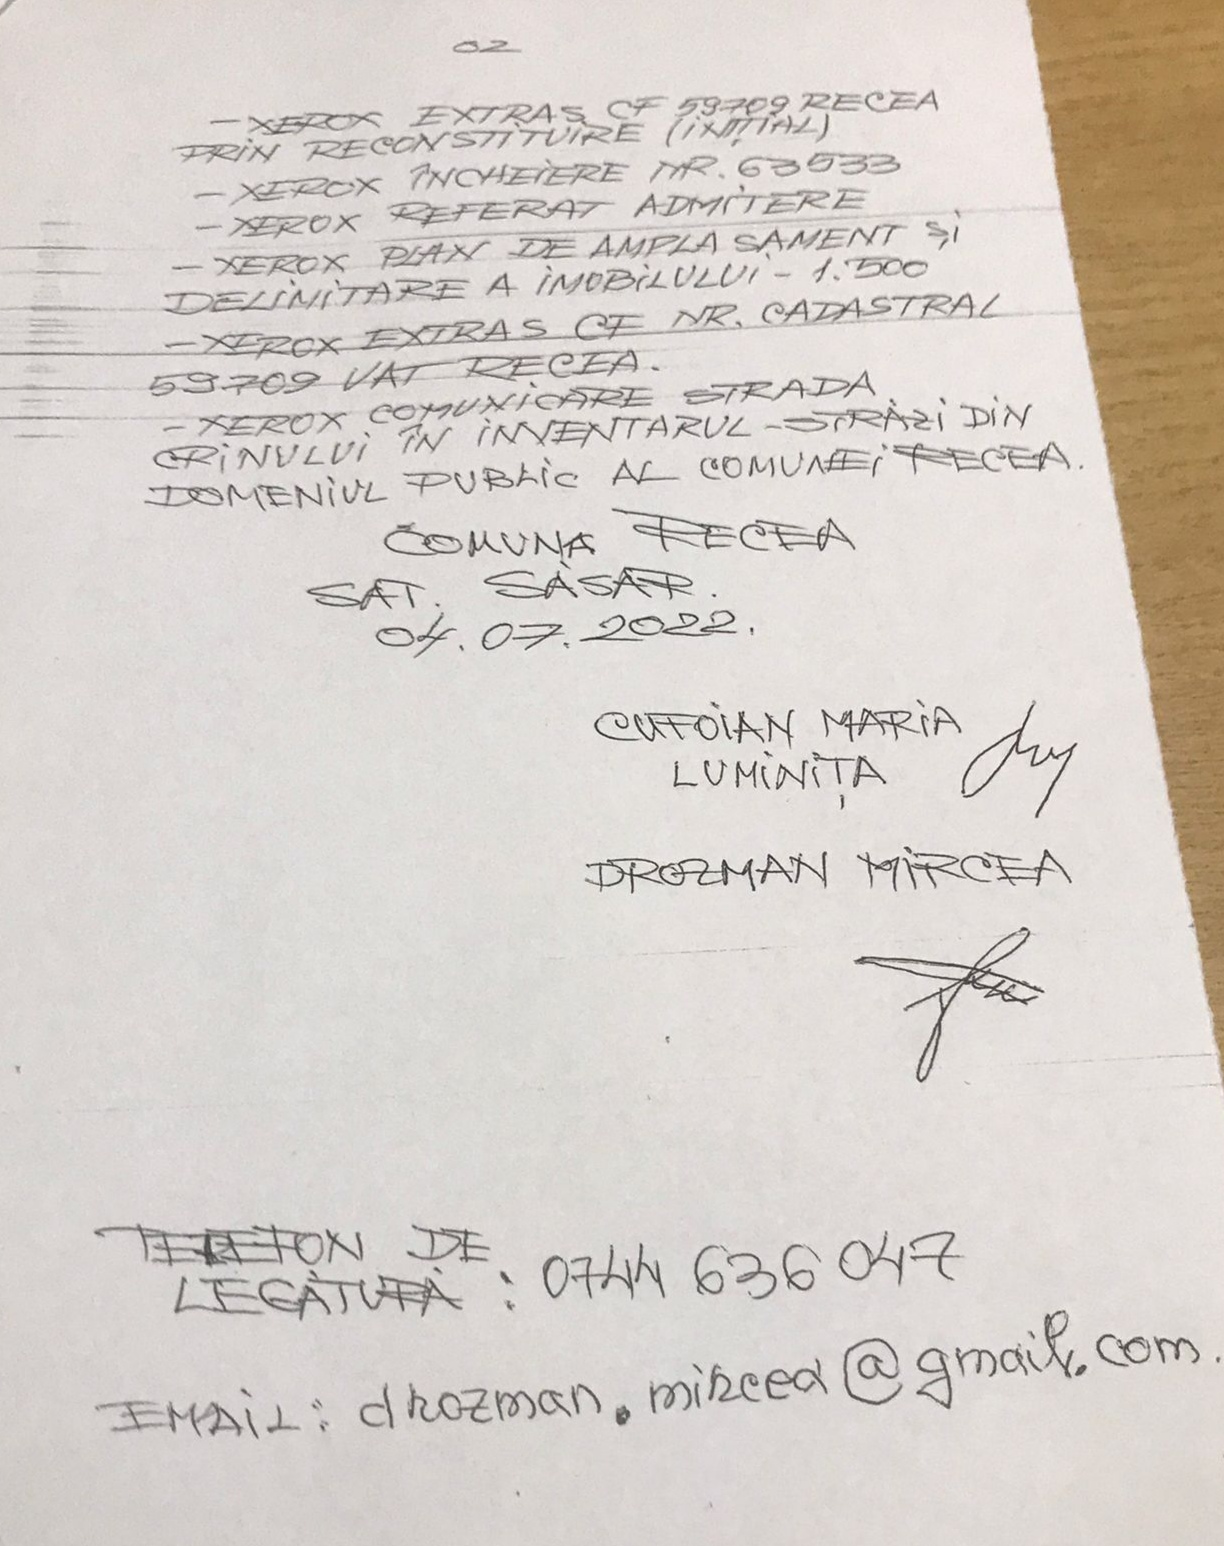 02
- XEROX EXTRAS CF 59709 RECEA
PRIN RECONSTITUIRE (INIȚIAL)
- XEROX ÎNCHEIERE NR. 63533
- XEROX REFERAT ADMITERE
- XEROX PLAN DE AMPLASAMENT ȘI
DELIMITARE A IMOBILULUI - 1.500
- XEROX EXTRAS CF NR. CADASTRAL
59709 VAT RECEA.
- XEROX COMUNICARE STRADA
CRINULUI ÎN INVENTARUL - STRĂZI DIN
DOMENIUL PUBLIC AL COMUNEI RECEA.
COMUNA RECEA
SAT. SĂSAR.
04.07.2022.
CUFOIAN MARIA
LUMINIȚA
DROZMAN MIRCEA
TELEFON DE
LEGĂTURĂ : 0744 636 047
EMAIL: drozman.mircea@gmail.com.